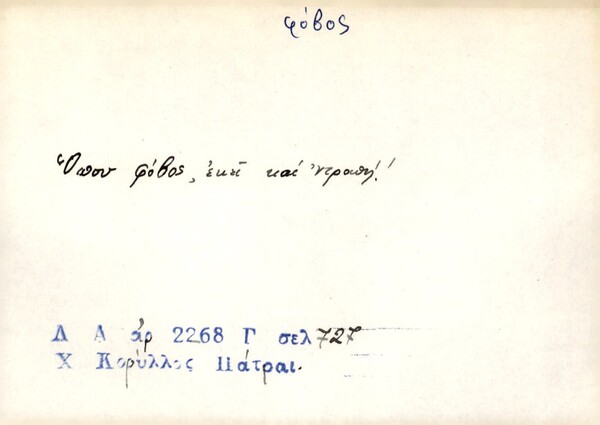 φόβος
Ὅπου φόβος, ἐκεῖ καί ’ντροπή!
Λ Α ἀρ 2268 Γ σελ 727
Χ Κορύλλος Πάτραι.